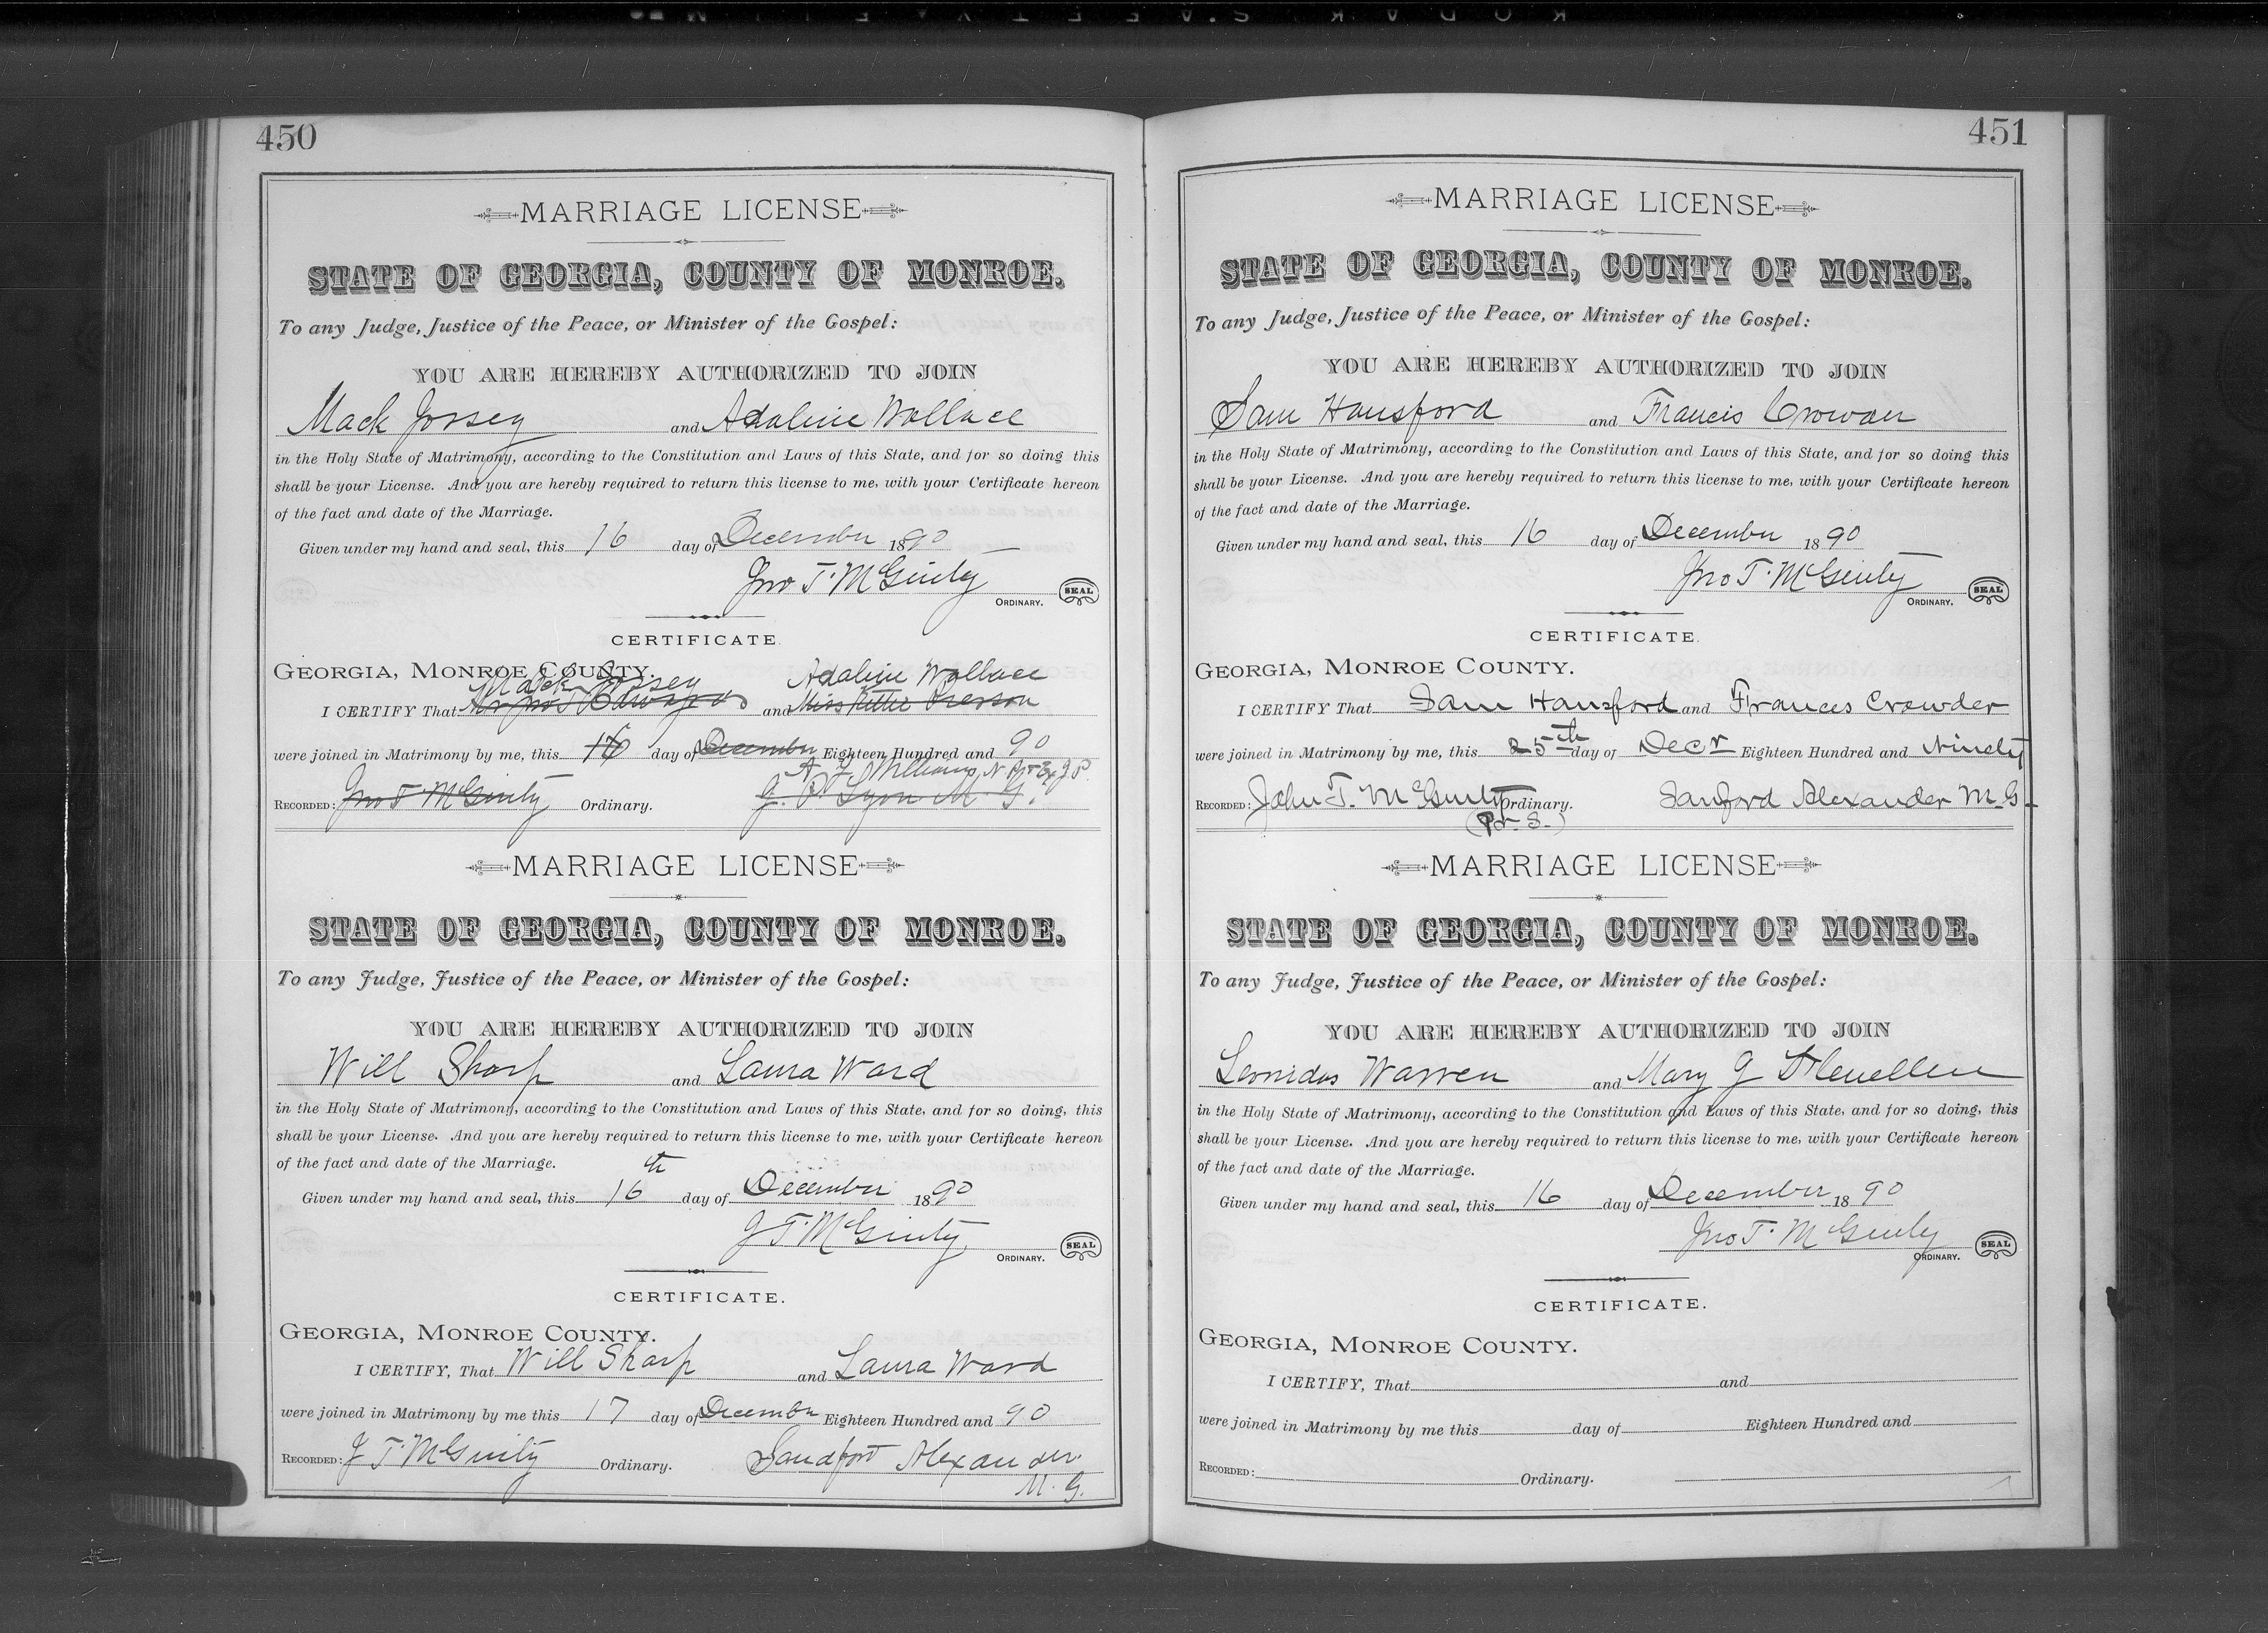 450
MARRIAGE LICENSE
STATE OF GEORGIA, COUNTY OF MONROE.
To any Judge, Justice of the Peace, or Minister of the Gospel:
YOU ARE HEREBY AUTHORIZED TO JOIN
Mack Jossey and Adaline Wallace
in the Holy State of Matrimony, according to the Constitution and Laws of this State, and for so doing this
shall be your License. And you are hereby required to return this license to me, with your Certificate hereon
of the fact and date of the Marriage.
Given under my hand and seal, this 16 day of December 1890
Jno T. McGinty
ORDINARY. SEAL
CERTIFICATE.
GEORGIA, MONROE COUNTY.
Mack Jossey Adaline Wallace
I CERTIFY That Mr Jno T Edwards and Miss Kittie Pierson
were joined in Matrimony by me, this 16 day of December Eighteen Hundred and 90
A. L. Williams, N.P. & Ex J.P.
RECORDED: Jno T. McGinty Ordinary. J. P. Lyon M. G.
MARRIAGE LICENSE
STATE OF GEORGIA, COUNTY OF MONROE.
To any Judge, Justice of the Peace, or Minister of the Gospel:
YOU ARE HEREBY AUTHORIZED TO JOIN
Will Sharp and Laura Ward
in the Holy State of Matrimony, according to the Constitution and Laws of this State, and for so doing, this
shall be your License. And you are hereby required to return this license to me, with your Certificate hereon
of the fact and date of the Marriage.
Given under my hand and seal, this 16th day of December 1890
J T. McGinty
ORDINARY. SEAL
CERTIFICATE.
GEORGIA, MONROE COUNTY.
I CERTIFY, That Will Sharp and Laura Ward
were joined in Matrimony by me this 17 day of December Eighteen Hundred and 90
RECORDED: J T. McGinty Ordinary. Sandfort Alexander
M. G.
451
MARRIAGE LICENSE
STATE OF GEORGIA, COUNTY OF MONROE.
To any Judge, Justice of the Peace, or Minister of the Gospel:
YOU ARE HEREBY AUTHORIZED TO JOIN
Sam Hansford and Francis Crowder
in the Holy State of Matrimony, according to the Constitution and Laws of this State, and for so doing this
shall be your License. And you are hereby required to return this license to me, with your Certificate hereon
of the fact and date of the Marriage.
Given under my hand and seal, this 16 day of December 1890
Jno T. McGinty
ORDINARY. SEAL
CERTIFICATE.
GEORGIA, MONROE COUNTY.
I CERTIFY That Sam Hansford and Frances Crowder
were joined in Matrimony by me, this 25th day of Decr Eighteen Hundred and Ninety
RECORDED: John T. McGinty Ordinary. Sanford Alexander M.G.
(Pr. S.)
MARRIAGE LICENSE
STATE OF GEORGIA, COUNTY OF MONROE.
To any Judge, Justice of the Peace, or Minister of the Gospel:
YOU ARE HEREBY AUTHORIZED TO JOIN
Leonidas Warren and Mary J
in the Holy State of Matrimony, according to the Constitution and Laws of this State, and for so doing, this
shall be your License. And you are hereby required to return this license to me, with your Certificate hereon
of the fact and date of the Marriage.
Given under my hand and seal, this 16 day of December 1890
Jno T. McGinty
ORDINARY. SEAL
CERTIFICATE.
GEORGIA, MONROE COUNTY.
I CERTIFY, That and
were joined in Matrimony by me this day of Eighteen Hundred and
RECORDED: Ordinary.